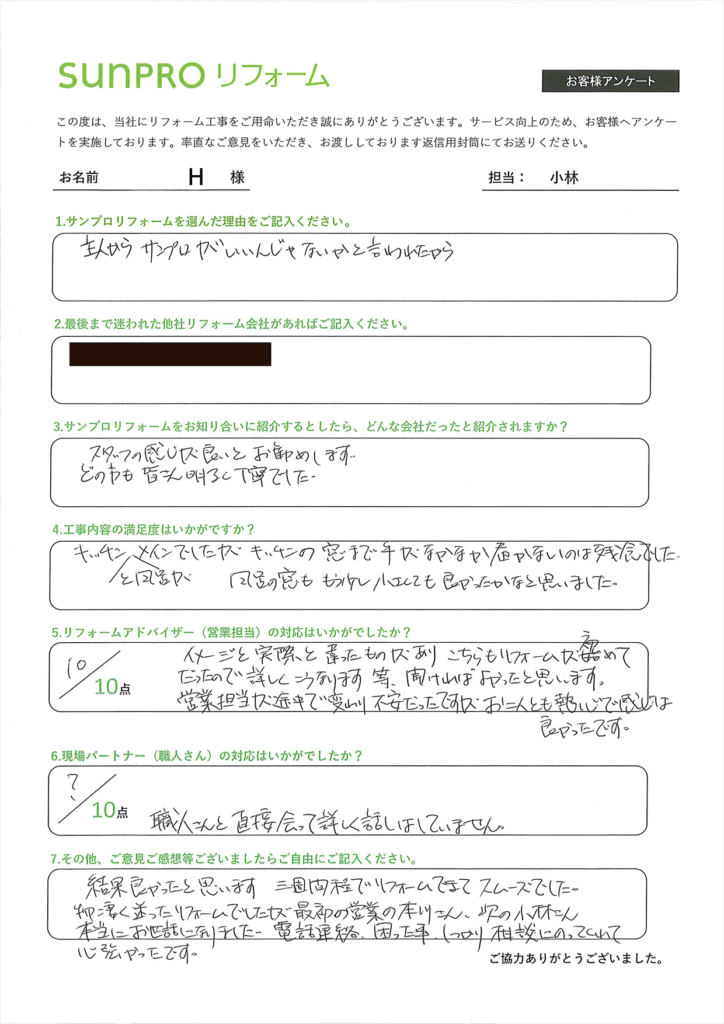 sunPRO リフォーム
お客様アンケート
この度は、当社にリフォーム工事をご用命いただき誠にありがとうございます。サービス向上のため、お客様へアンケー
トを実施しております。率直なご意見をいただき、お渡ししております返信用封筒にてお送りください。
お名前 H 様
担当： 小林
1.サンプロリフォームを選んだ理由をご記入ください。
主人から サンプロがいいんじゃないかと言われたから
2.最後まで迷われた他社リフォーム会社があればご記入ください。
3.サンプロリフォームをお知り合いに紹介するとしたら、どんな会社だったと紹介されますか？
スタッフの感じが良いと お勧めします.
どの方も 皆さん明るく丁寧でした.
4.工事内容の満足度はいかがですか？
キッチン メインでしたが キッチンの 窓まで手がなかなか届かないのは残念でした.
と風呂が 風呂の窓も もう少し小さくても 良かったかなと思いました.
5.リフォームアドバイザー（営業担当）の対応はいかがでしたか？
10／10点
イメージと実際と違ったものがあり こちらもリフォームが初めて
だったので詳しくこうなります 等、聞ければよかったと思います。
営業担当が途中で変わり 不安だったですが お二人とも熱心で感じは
良かったです。
6.現場パートナー（職人さん）の対応はいかがでしたか？
?／10点
職人さんと直接会って詳しく話しはしていません。
7.その他、ご意見ご感想等ございましたらご自由にご記入ください。
結果良かったと思います 三週間程でリフォームできて スムーズでした。
迷ったリフォームでしたが 最初の営業の本川さん、次の小林さん
本当にお世話になりました. 電話連絡、困った事、しっかり 相談にのってくれて
心強かったです。
ご協力ありがとうございました。